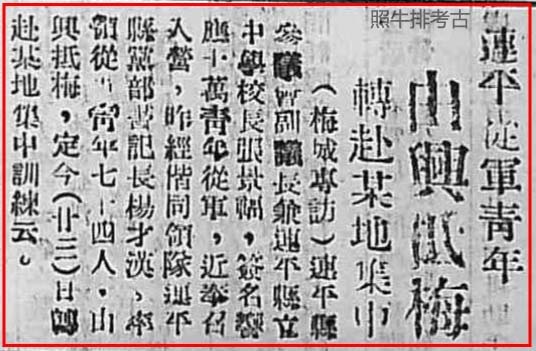 照牛排考古
連平從軍青年
由興抵梅
轉赴某地集中
（梅城專訪）連平縣
參議會副議長兼連平縣立
中學校長張景福，簽名響
應十萬青年從軍，近奉召
入營，昨經偕同領隊連平
縣黨部書記長楊才漢，率
領從軍青年七十四人，由
興抵梅，定今（廿三）日轉
赴某地集中訓練云。